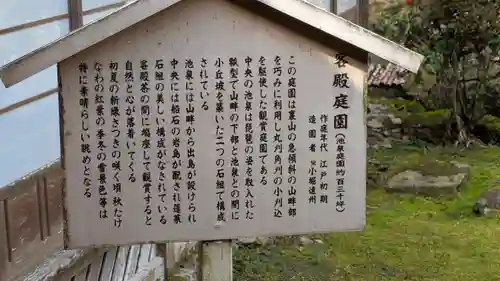 客殿庭園(池泉庭園約百三十坪)
作庭年代 江戸初期
造園者 伝小堀遠州
この庭園は裏山の急傾斜の山畔部
を巧みに利用し刈角刈の小刈込
を駆使した観賞庭園である
中央の池泉は琵琶の姿を取入れた
瓢型で山畔の下部と池泉との間に
小丘坡を築いた二つの石組で構成
されている
池泉には山畔部から出島が設けられ
中央には船石の岩島が配され蓬莱
石組の美しい構成がなされている
客殿茶の間に端座して観賞すると
自然と心が落着いてくる
初夏の新緑さつきの咲く頃秋たけ
なわの紅葉の季冬の雪景色等は
特に素晴らしい眺めとなる